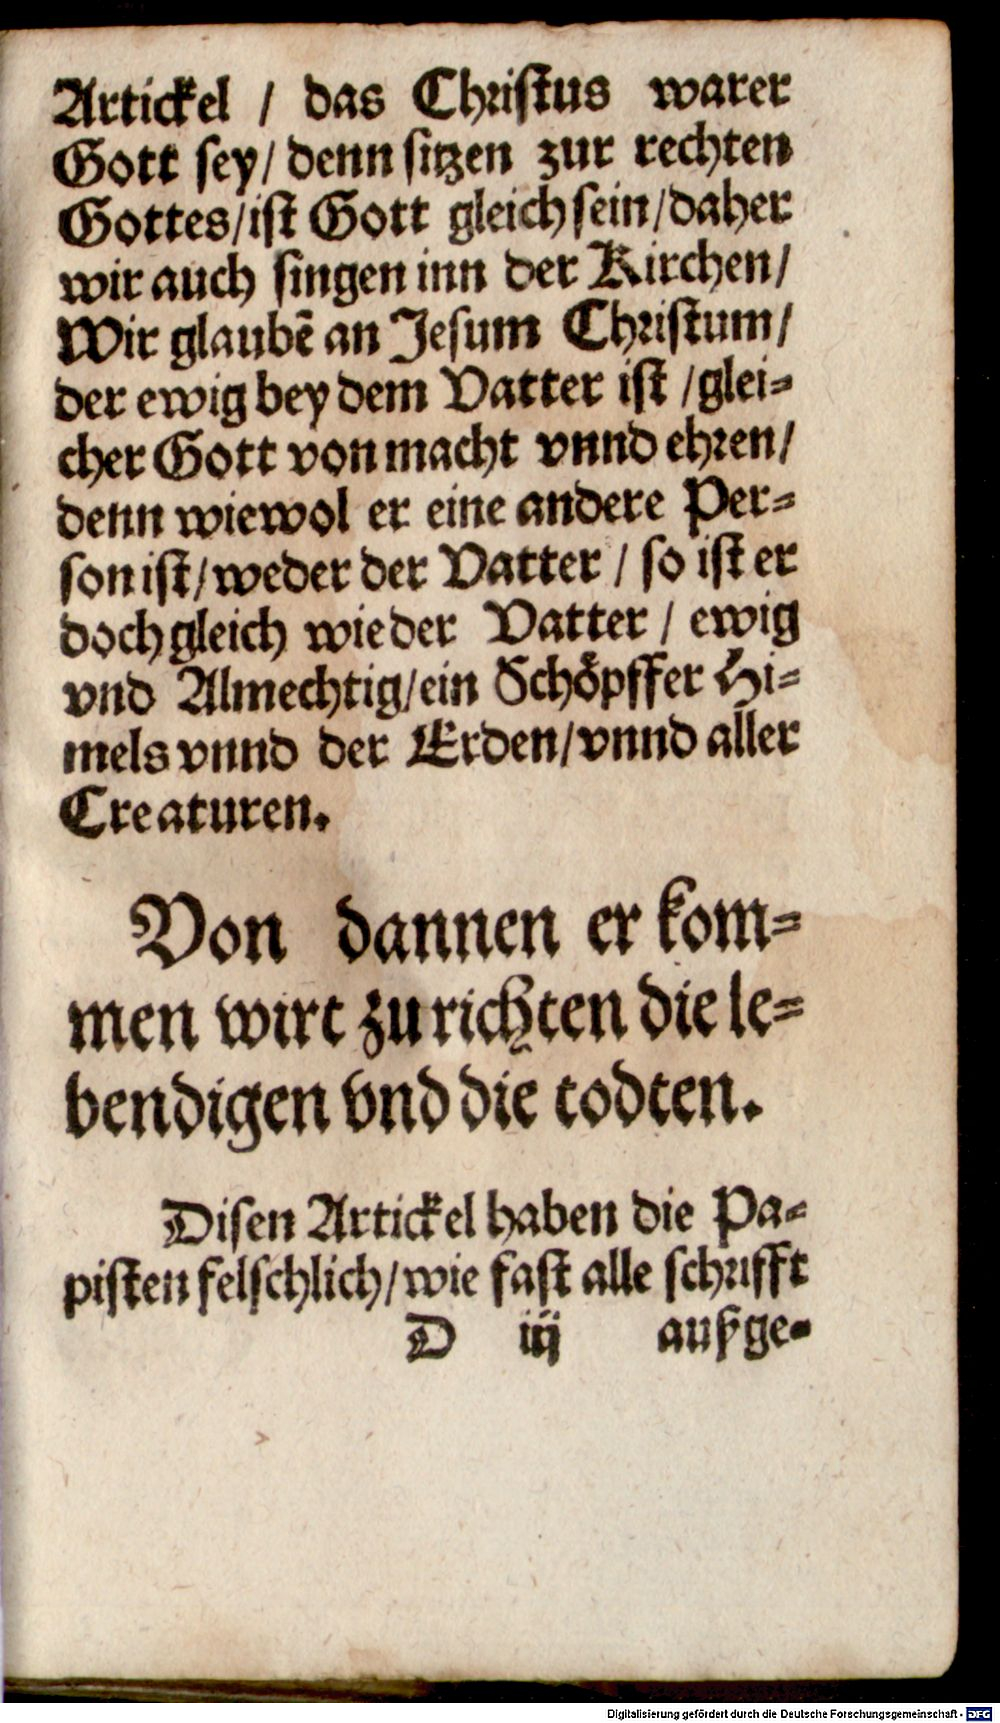 Artickel / das Christus warer
Gott sey/ denn sitzen zur rechten
Gottes/ist Gott gleich sein/daher
wir auch singen inn der Kirchen/
Wir glaubē an Jesum Christum/
der ewig bey dem Vatter ist /glei-
cher Gott von macht vnnd ehren/
denn wiewol er eine andere Per-
son ist/weder der Vatter / so ist er
doch gleich wie der Vatter / ewig
vnd Almechtig/ein Schöpffer Hi-
mels vnnd der Erden/vnnd aller
Creaturen.
Von dannen er kom-
men wirt zu richten die le-
bendigen vnd die todten.
Disen Artickel haben die Pa-
pisten felschlich/wie fast alle schrifft
D iij außge-
Digitalisierung gefördert durch die Deutsche Forschungsgemeinschaft - DFG